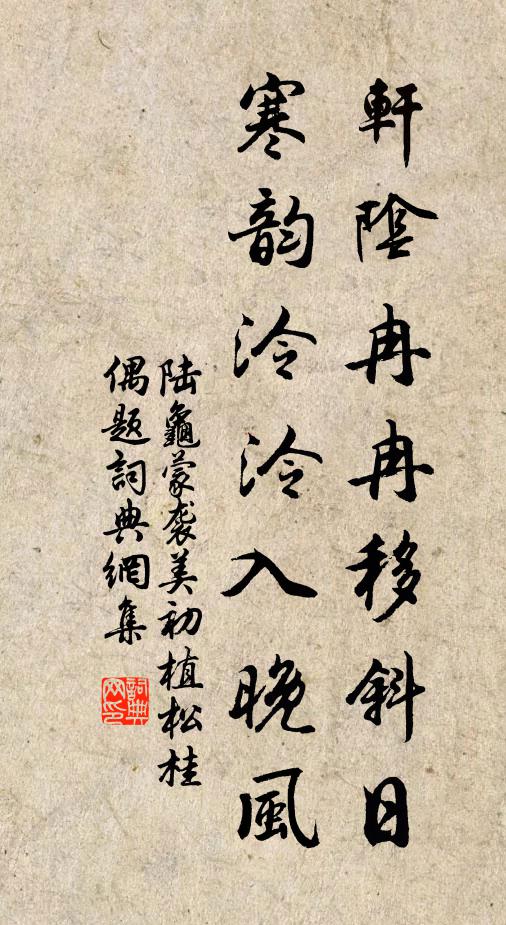 軒陰冉冉移斜日
寒韵泠泠入晚風
陆龜蒙袭美初植松桂
偶题詞典網集
詞典
网印